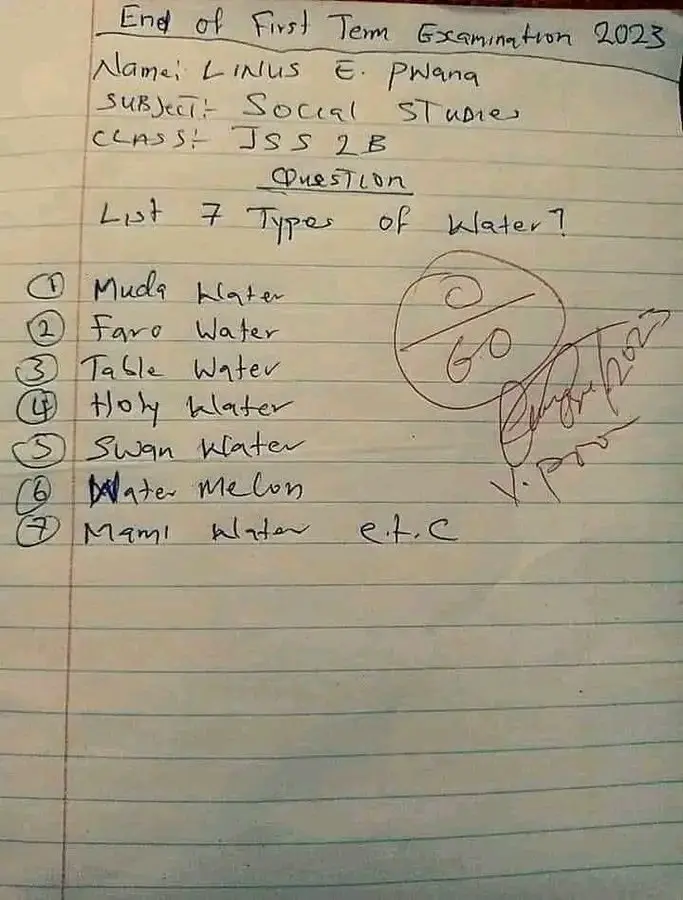 End of First Term Examination 2023
Name: LINUS E. PWana
SUBJECT:- Social STUDIes
CLASS:- JSS 2B
Question
List 7 Types of Water?
① Muda Water
② Faro Water
③ Table Water
④ Holy Water
⑤ Swan Water
⑥ Water Melon
⑦ Mami Water e.t.c
0/60
/2023
V. poor